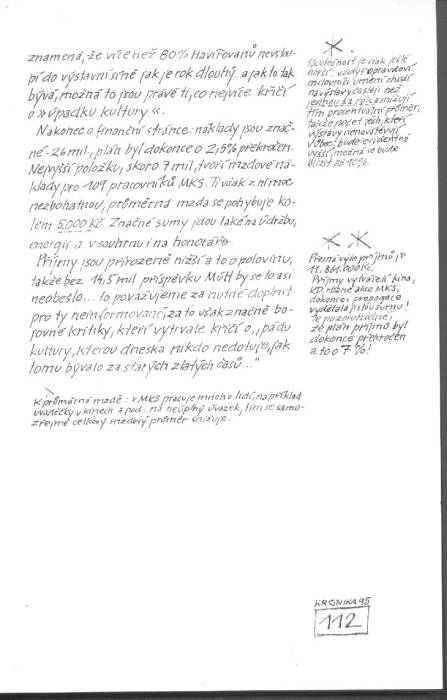 znamená, že více než 80% Havířovanů nevstou-
pí do výstavní síně jak je rok dlouhý. a jak to tak
bývá, možná to jsou právě ti, co nejvíce křičí
o »úpadku kultury«.
Nakonec o finanční stránce: náklady jsou znač-
né - 26 mil, plán byl dokonce o 2,5% překročen.
Nejvyšší položku, skoro 7 mil, tvoří mzdové ná-
klady pro 109 pracovníků MKS. Ti však z ní moc
nezbohatnou, průměrná mzda se pohybuje ko-
lem 5.000 Kč. Značné sumy jdou také na údržbu,
energii a v souhrnu i na honoráře.
Příjmy jsou přirozeně nižší a to o polovinu,
takže bez 14,5 mil příspěvku MúH by se to asi
neobešlo... to považujeme za nutné doplnit
pro ty neinformované, za to však značně bo-
jovné kritiky, kteří vytrvale křičí o „pádu
kultury, kterou dneska nikdo nedotuje, jak
tomu bývalo za starých zlatých časů..."
K průměrné mzdě: v MKS pracuje mnoho lidí, na příklad
uvaděčky v kinech a pod. na neúplný úvazek, tím se samo-
zřejmě celkový mzdový průměr snižuje.
*
Skutečnost je však ještě
horší. vždyť opravdoví
milovníci umění chodí
na výstavy častěji než
jednou za rok a snižují
tím procentuální průměr,
takže počet těch, kteří
výstavy nenavštěvují
vůbec, bude evidentně
vyšší, možná se bude
blížit až 90%.
**
Přesná výše příjmů je
11.861.000 Kč.
Příjmy vytváří kina,
KD, různé akce MKS,
dokonce i propagace
vydělala jistou sumu!
Je pozoruhodné,
že plán příjmů byl
dokonce překročen
a to o 7%!
KRONIKA 95
112